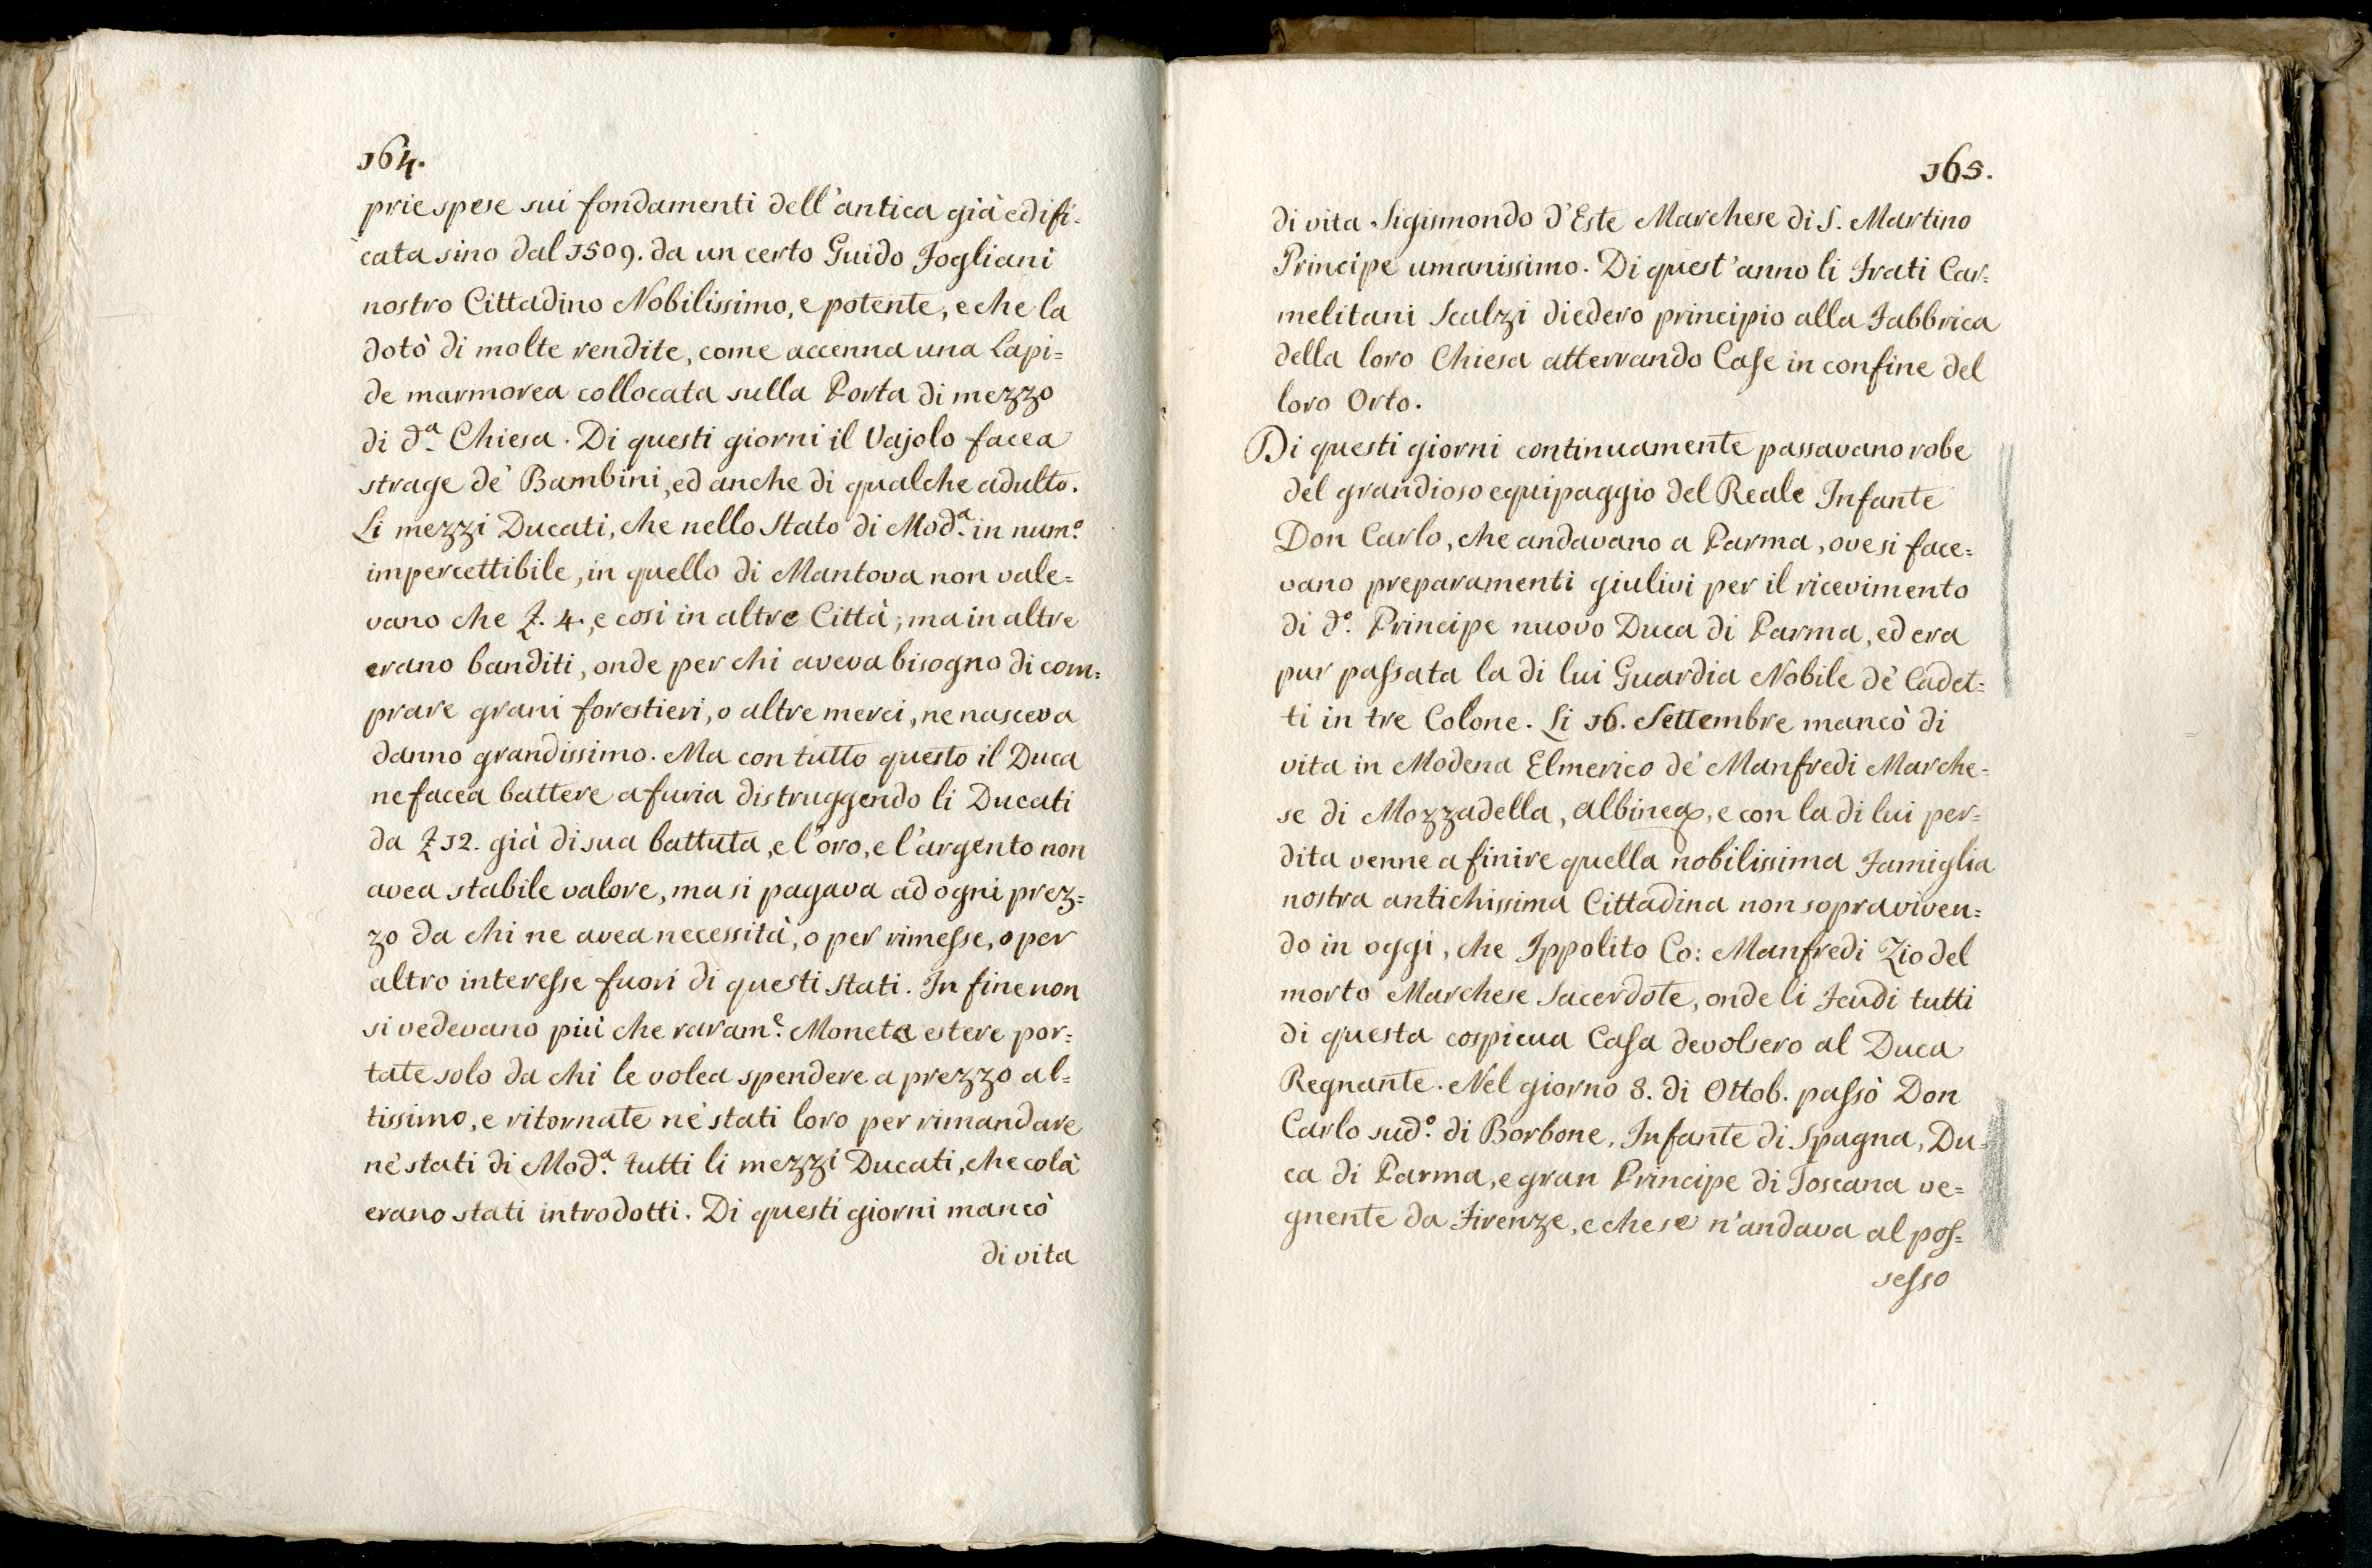 164.
prie spese sui fondamenti dell'antica già edifi=
cata sino dal 1509. da un certo Guido Fogliani
nostro Cittadino Nobilissimo, e potente, e che la
dotò di molte rendite, come accenna una Lapi=
de marmorea collocata sulla Porta di mezzo
di d.ª Chiesa. Di questi giorni il Vajolo facea
strage de' Bambini, ed anche di qualche adulto.
Li mezzi Ducati, che nello Stato di Mod.ª in num.º
impercettibile, in quello di Mantova non vale=
vano che £. 4., e così in altre Città; ma in altre
erano banditi, onde per chi aveva bisogno di com=
prare grani forestieri, o altre merci, ne nasceva
danno grandissimo. Ma con tutto questo il Duca
ne facea battere a furia distruggendo li Ducati
da £ 12. già di sua battuta, e l'oro, e l'argento non
avea stabile valore, ma si pagava ad ogni prez=
zo da chi ne avea necessità, o per rimesse, o per
altro interesse fuori di questi stati. In fine non
si vedevano più che raram.e Monete estere por=
tate solo da chi le volea spendere a prezzo al=
tissimo, e ritornate ne' stati loro per rimandare
ne' stati di Mod.ª tutti li mezzi Ducati, che colà
erano stati introdotti. Di questi giorni mancò
di vita
165.
di vita Sigismondo d'Este Marchese di S. Martino
Principe umanissimo. Di quest'anno li Frati Car=
melitani Scalzi diedero principio alla Fabbrica
della loro Chiesa atterrando Case in confine del
loro Orto.
Di questi giorni continuamente passavano robe
del grandioso equipaggio del Reale Infante
Don Carlo, che andavano a Parma, ove si face=
vano preparamenti giulivi per il ricevimento
di d.º Principe nuovo Duca di Parma, ed era
pur passata la di lui Guardia Nobile de' Cadet=
ti in tre Colone. Li 16. Settembre mancò di
vita in Modena Elmerico de' Manfredi Marche=
se di Mozzadella, Albinea, e con la di lui per=
dita venne a finire quella nobilissima Famiglia
nostra antichissima Cittadina non sopraviven=
do in oggi, che Ippolito Co: Manfredi Zio del
morto Marchese Sacerdote, onde li Feudi tutti
di questa cospicua Casa devolsero al Duca
Regnante. Nel giorno 8. di Ottob. passò Don
Carlo sud.º di Borbone, Infante di Spagna, Du=
ca di Parma, e gran Principe di Toscana ve=
gnente da Firenze, e che se n'andava al pos=
sesso